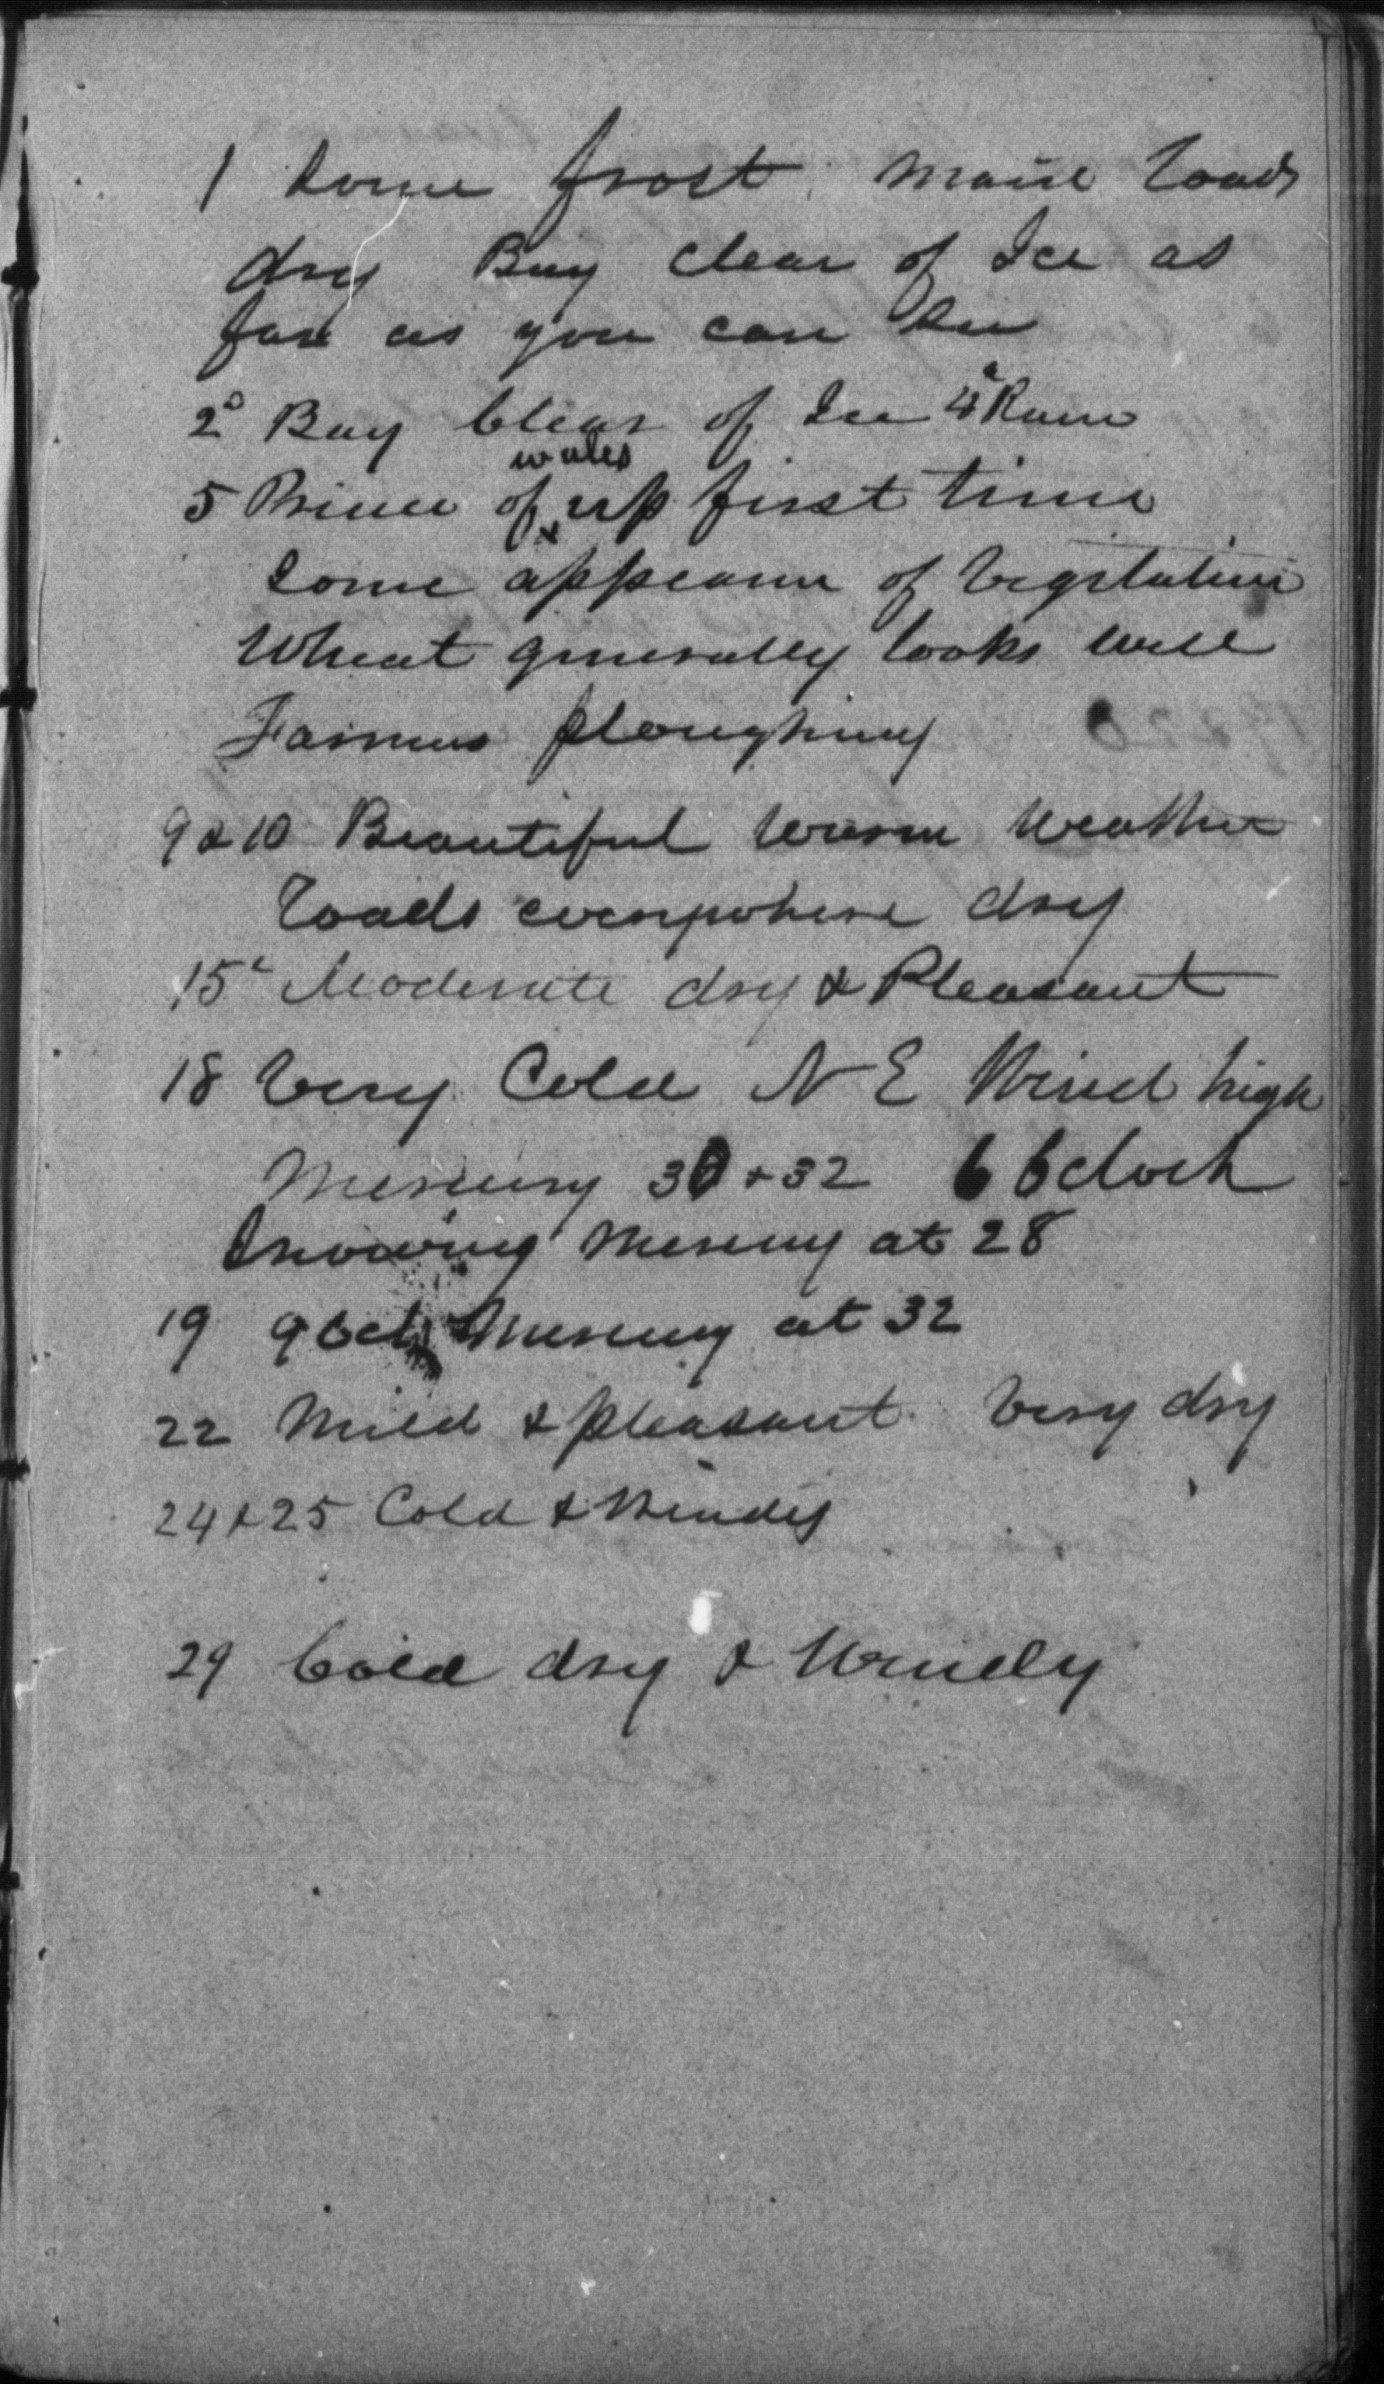 1 Some frost. Main roads
dry Bay clear of Ice as
far as you can see
2d Bay Clear of Ice 4 Rain
wales
5 Prince of up first time
Some appearan of Vegitation
Wheat generally looks well
Farmers ploughing
9 & 10 Beautiful warm weather
Roads everywhere dry
15 Moderate dry & Pleasant
18 Very Cold N E Wind high
Mercury 30 & 32 6 Oclock
Snowing Mercury at 28
19 9 Oclk Mercury at 32
22 Mild & pleasant. Very dry
24 & 25 Cold & Windy
29 Cold dry & Windy